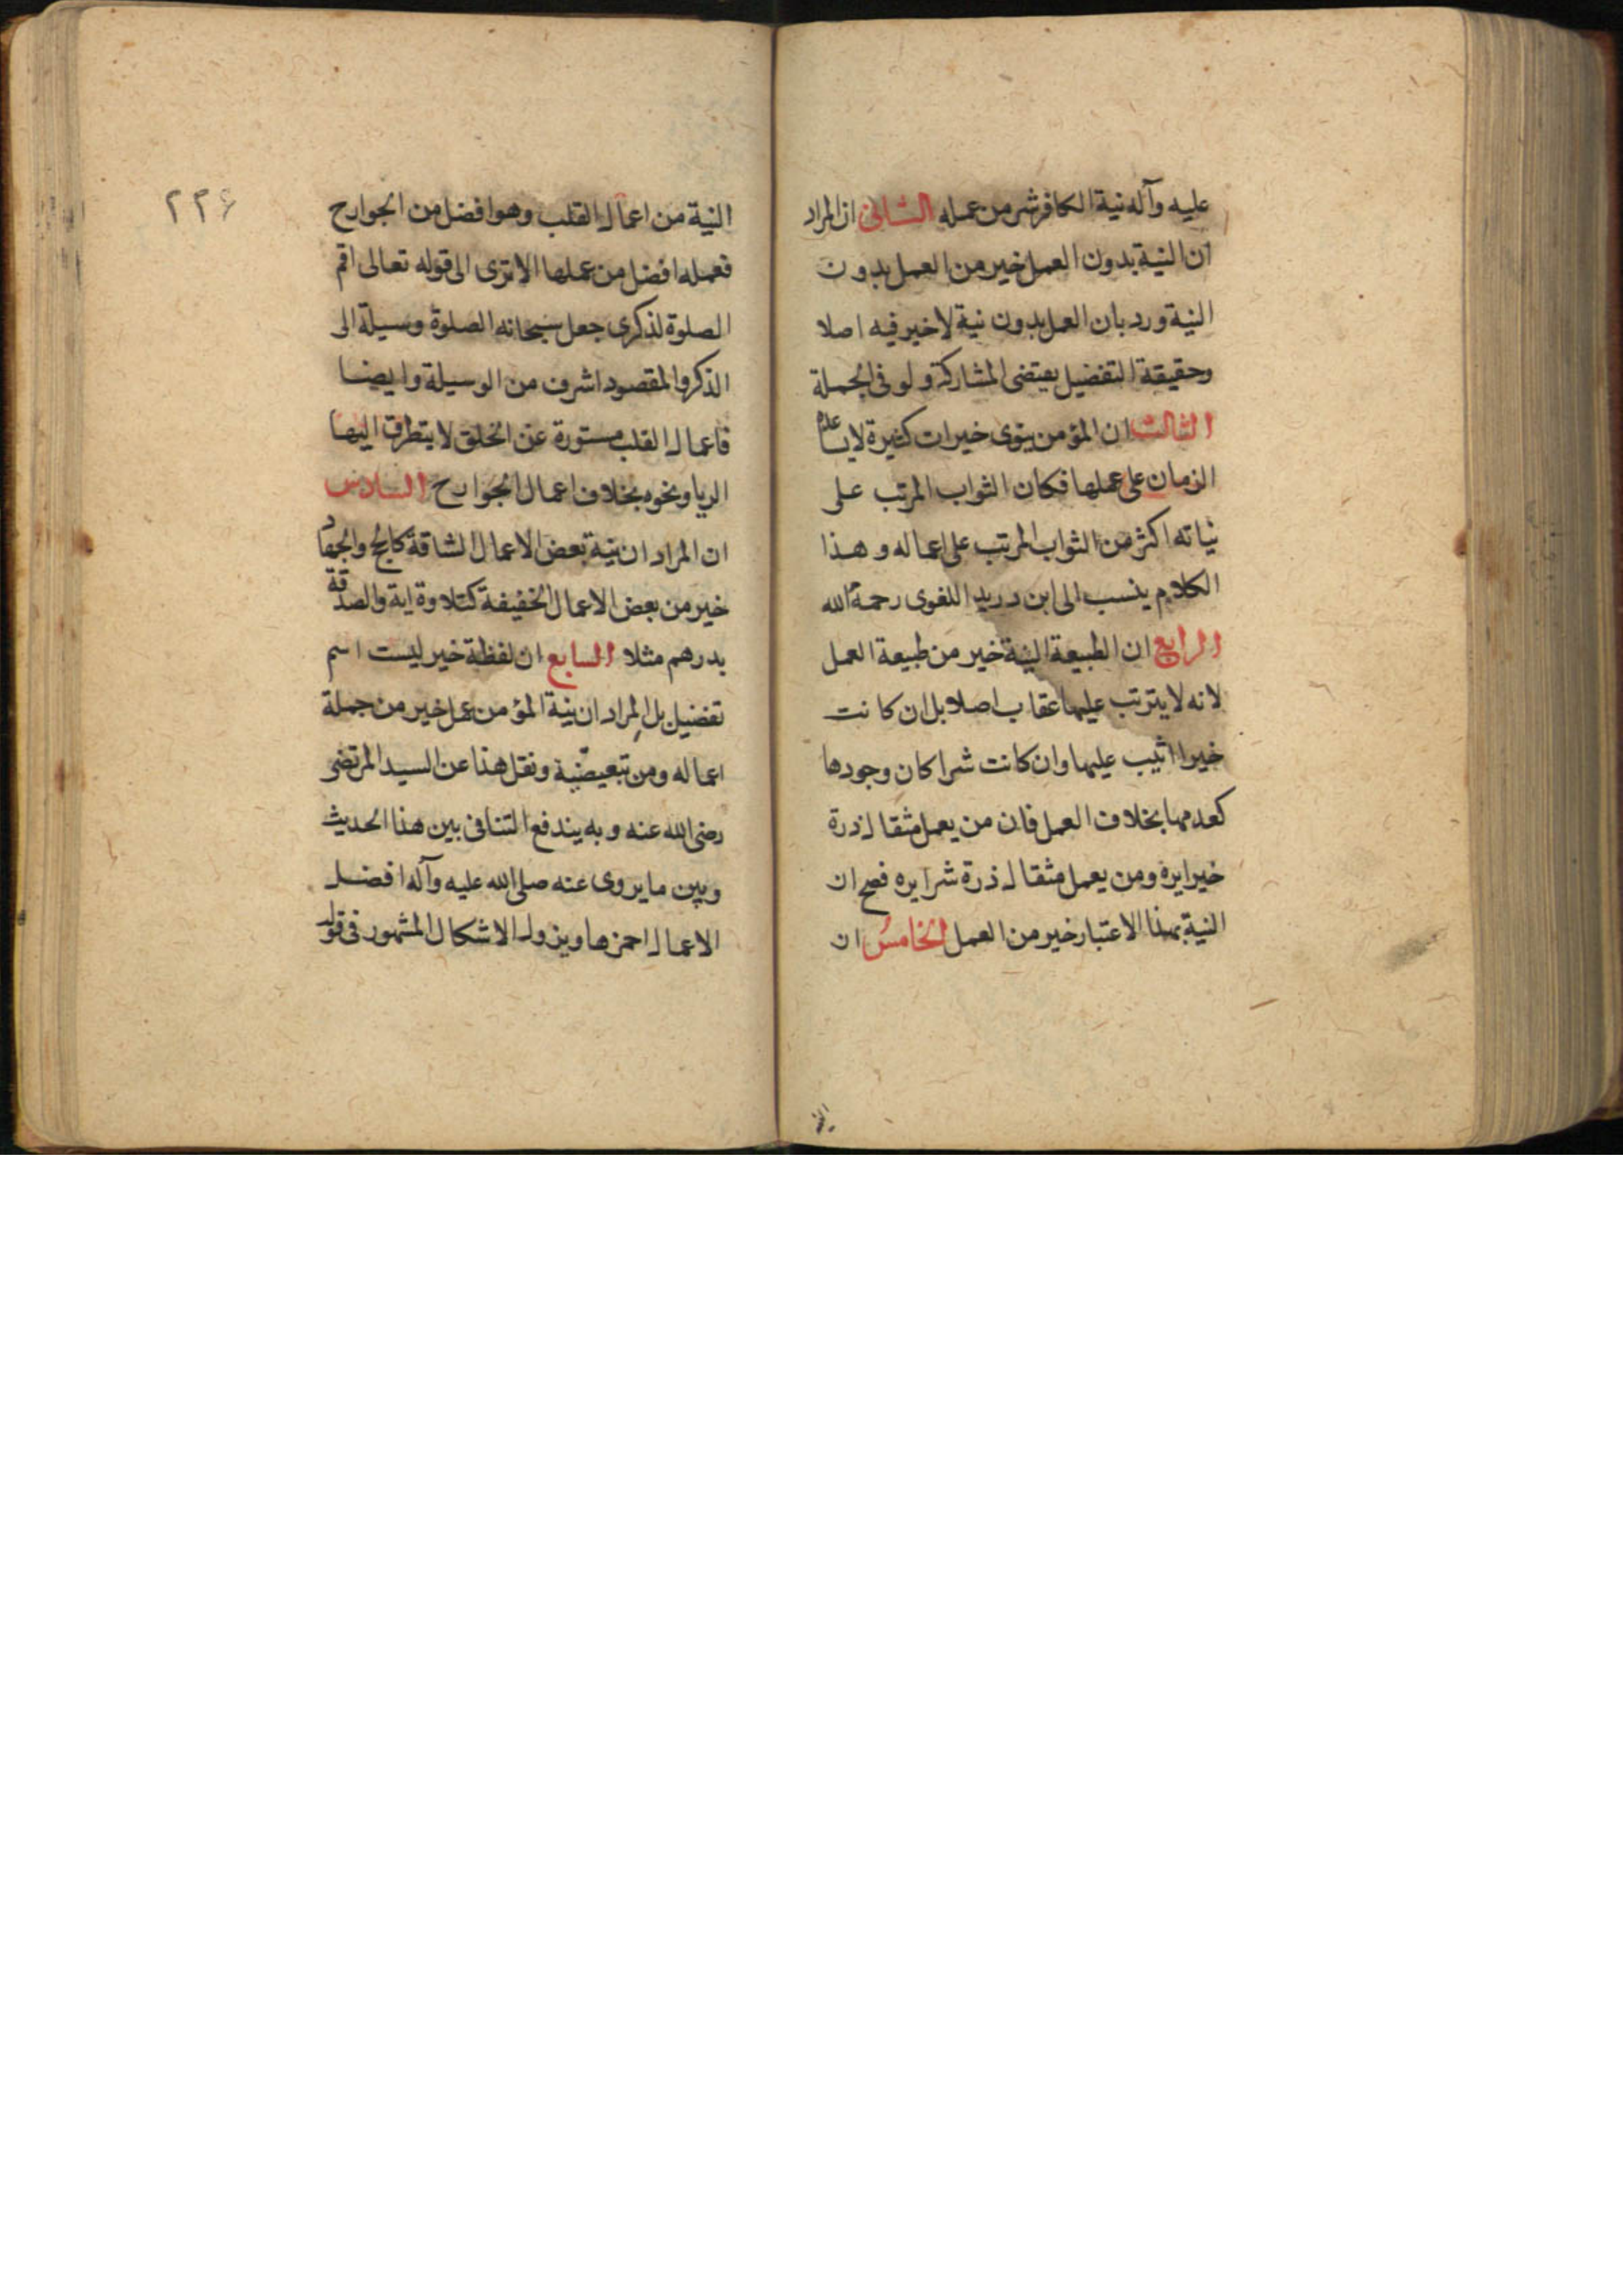 عليه وآله نية الكافر شر من عمله الثانى ان المراد
ان النية بدون العمل خير من العمل بدون
النية ورد بان العمل بدون نية لا خير فيه اصلا
وحقيقة التفضيل يقتضى المشاركة ولو فى الجملة
الثالث ان المؤمن ينوى خيرات كثيرة لا يساعده
الزمان على عملها فكان الثواب المرتب على
نياته اكثر من الثواب المرتب على اعماله وهذا
الكلام ينسب الى ابن دريد اللغوى رحمة الله
الرابع ان الطبيعة النية خير من طبيعة العمل
لانه لا يترتب عليها عقاب اصلا بل ان كانت
خيرا اثيب عليها وان كانت شرا كان وجودها
كعدمها بخلاف العمل فان من يعمل مثقال ذرة
خيرا يره ومن يعمل مثقال ذرة شرا يره فصح ان
النية بهذا الاعتبار خير من العمل الخامس ان
٢٢۶
النية من اعمال القلب وهو افضل من الجوارح
فعمله افضل من عملها الا ترى الى قوله تعالى اقم
الصلوة لذكرى جعل سبحانه الصلوة وسيلة الى
الذكر والمقصود اشرف من الوسيلة وايضا
فاعمال القلب مستورة عن الخلق لا يتطرق اليها
الريا ونحوه بخلاف اعمال الجوارح السادس
ان المراد ان نية بعض الاعمال الشاقة كالحج والجهاد
خير من بعض الاعمال الخفيفة كتلاوة اية والصدقة
بدرهم مثلا السابع ان لفظة خير ليست اسم
تفضيل بل المراد ان نية المؤمن عمل خير من جملة
اعماله ومن تبعيضية ونقل هذا عن السيد المرتضى
رضى الله عنه وبه يندفع التنافى بين هذا الحديث
وبين ما يروى عنه صلى الله عليه وآله افضل
الاعمال احمزها ويزول الاشكال المشهور فى قوله